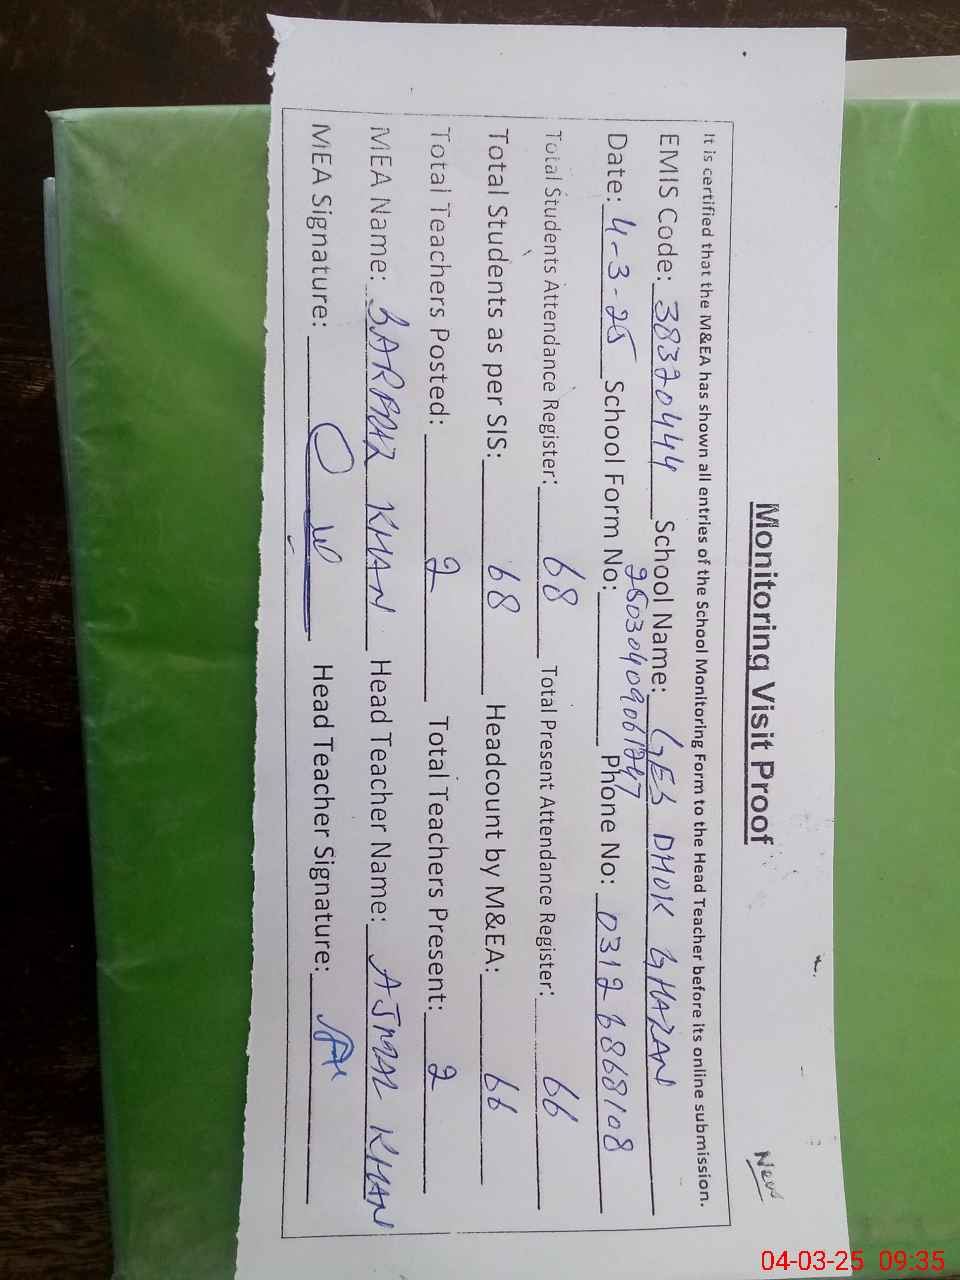 Monitoring Visit Proof
New
It is certified that the M&EA has shown all entries of the School Monitoring Form to the Head Teacher before its online submission.
EMIS Code: 38320444 School Name: GES DHOK GHAZAN
Date: 4-3-25 School Form No: 25030409061247 Phone No: 0312 6868108
Total Students Attendance Register: 68 Total Present Attendance Register: 66
Total Students as per SIS: 68 Headcount by M&EA: 66
Total Teachers Posted: 2 Total Teachers Present: 2
MEA Name: KHAN Head Teacher Name: AJMAL KHAN
MEA Signature: Head Teacher Signature:
04-03-25 09:35